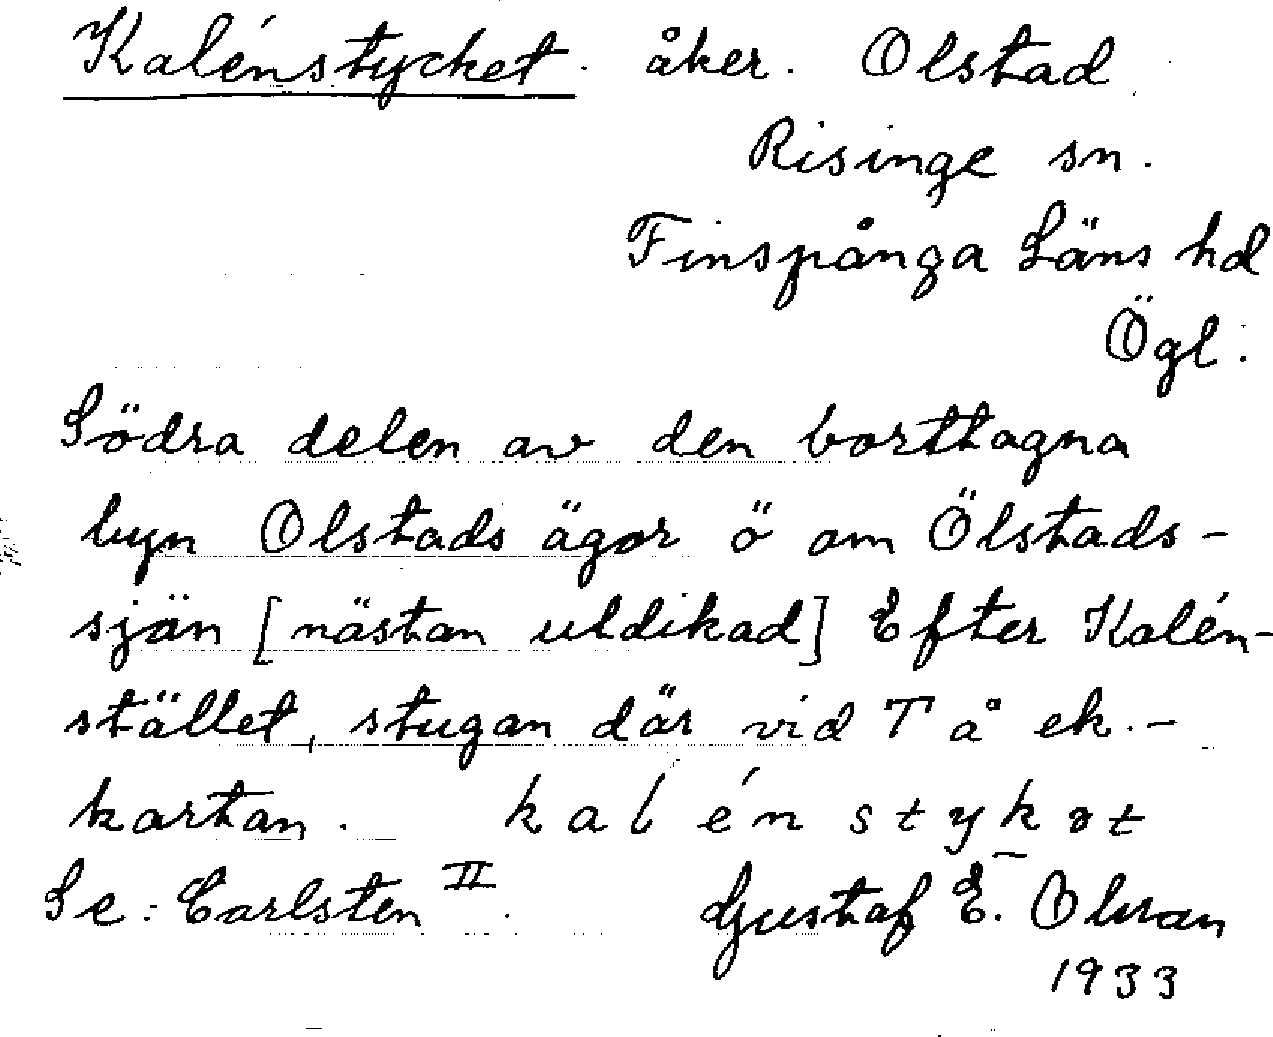 Kalénstycket. åker. Olstad
Risinge sn.
Finspånga Läns hd
Ögl.
Södra delen av den borttagna
byn Olstads ägor ö om Ölstads-
sjön [nästan utdikad] Efter Kalén-
stället, stugan där vid T å ek.-
kartan. kalénstykət
Se: Carlsten II. Gustaf E. Olson
1933